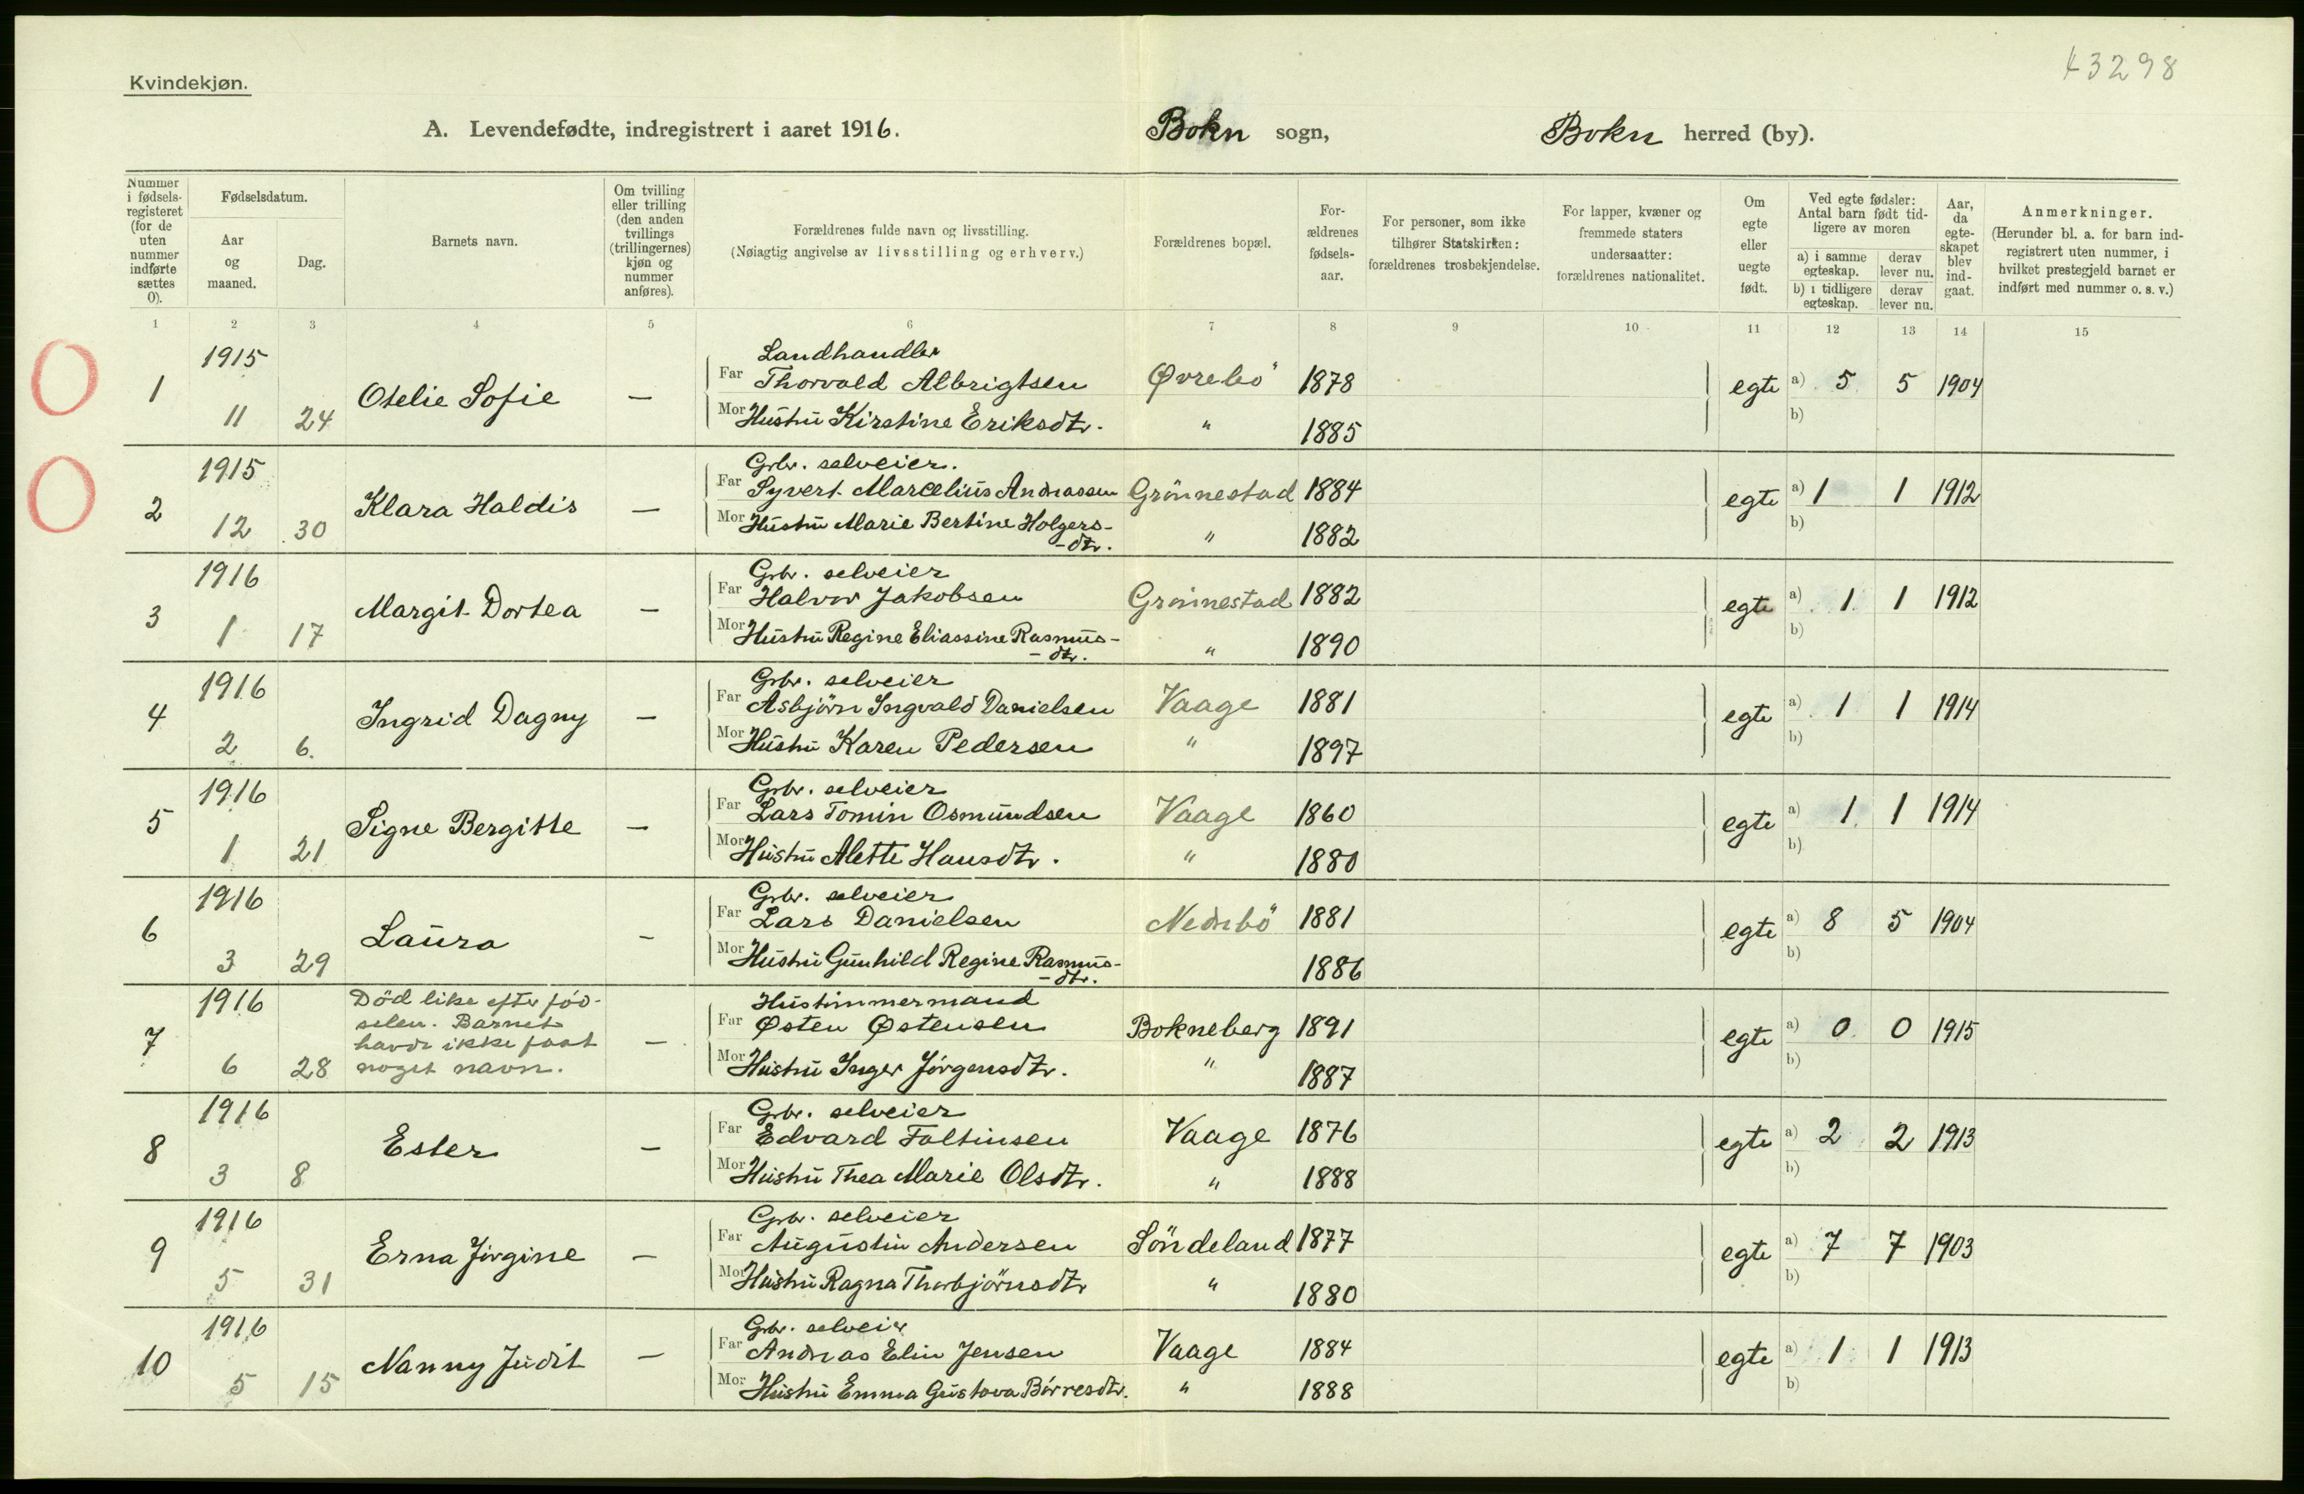 43298
Kvindekjøn.
A. Levendefødte, indregistrert i aaret 1916. Bokn sogn, Bokn herred (by).
Nummer i fødselsregisteret (for de uten nummer indførte sættes 0).
Fødselsdatum.
Aar og maaned.
Dag.
Barnets navn.
Om tvilling eller trilling (den anden tvillings (trillingernes) kjøn og nummer anføres).
Forældrenes fulde navn og livsstilling.
(Nøiagtig angivelse av livsstilling og erhverv.)
Forældrenes bopæl.
For-ældrenes fødsels-aar.
For personer, som ikke tilhører Statskirken: forældrenes trosbekjendelse.
For lapper, kvæner og fremmede staters undersaatter: forældrenes nationalitet.
Om egte eller uegte født.
Ved egte fødsler: Antal barn født tidligere av moren
a) i samme egteskap. derav lever nu.
b) i tidligere egteskap. derav lever nu.
Aar, da egteskapet blev indgaat.
Anmerkninger.
(Herunder bl. a. for barn indregistrert uten nummer, i hvilket prestegjeld barnet er indført med nummer o. s. v.)
1 2 3 4 5 6 7 8 9 10 11 12 13 14 15
1915 Landhandler
1 Otelie Sofie — Far Thorvald Albrigtsen Øvrebö 1878 egte a) 5 5 1904
11 24 Mor Hustru Kirstine Eriksdtr. " 1885 b)
1915 Grbr. selveier.
2 Klara Haldis — Far Syvert Marcelius Andreassen Grönnestad 1884 egte a) 1 1 1912
12 30 Mor Hustru Marie Bertine Holgers- " 1882 b)
-dtr.
1916 Grbr. selveier
3 Margit Dortea — Far Halvor Jakobsen Grönnestad 1882 egte a) 1 1 1912
1 17 Mor Hustru Regine Eliassine Rasmus- " 1890 b)
-dtr.
1916 Grbr. selveier
4 Ingrid Dagny — Far Asbjörn Ingvald Danielsen Vaage 1881 egte a) 1 1 1914
2 6. Mor Hustru Karen Pedersen " 1897 b)
1916 Grbr. selveier
5 Signe Bergitte — Far Lars Tomin Osmundsen Vaage 1860 egte a) 1 1 1914
1 21 Mor Hustru Alette Hansdtr. " 1880 b)
1916 Grbr. selveier
6 Laura — Far Lars Danielsen Nedrebö 1881 egte a) 8 5 1904
3 29 Mor Hustru Gunhild Regine Rasmus- 1886 b)
-dtr.
1916 Död like efter föd- Hustimmermand
7 selen. Barnet — Far Østen Østensen Bokneberg 1891 egte a) 0 0 1915
havde ikke faat
6 28 noget navn. Mor Hustru Inger Jörgensdtr. " 1887 b)
1916 Grbr. selveier
8 Ester — Far Edvard Foltinsen Vaage 1876 egte a) 2 2 1913
3 8 Mor Hustru Thea Marie Olsdtr. " 1888 b)
1916 Grbr. selveier
9 Erna Jörgine — Far Augustin Andersen Söndeland 1877 egte a) 7 7 1903
5 31 Mor Hustru Ragna Thorbjörnsdtr " 1880 b)
1916 Grbr. selveier
10 Nanny Judit — Far Andreas Elin Jensen Vaage 1884 egte a) 1 1 1913
5 15 Mor Hustru Emma Gustava Börresdtr. " 1888 b)